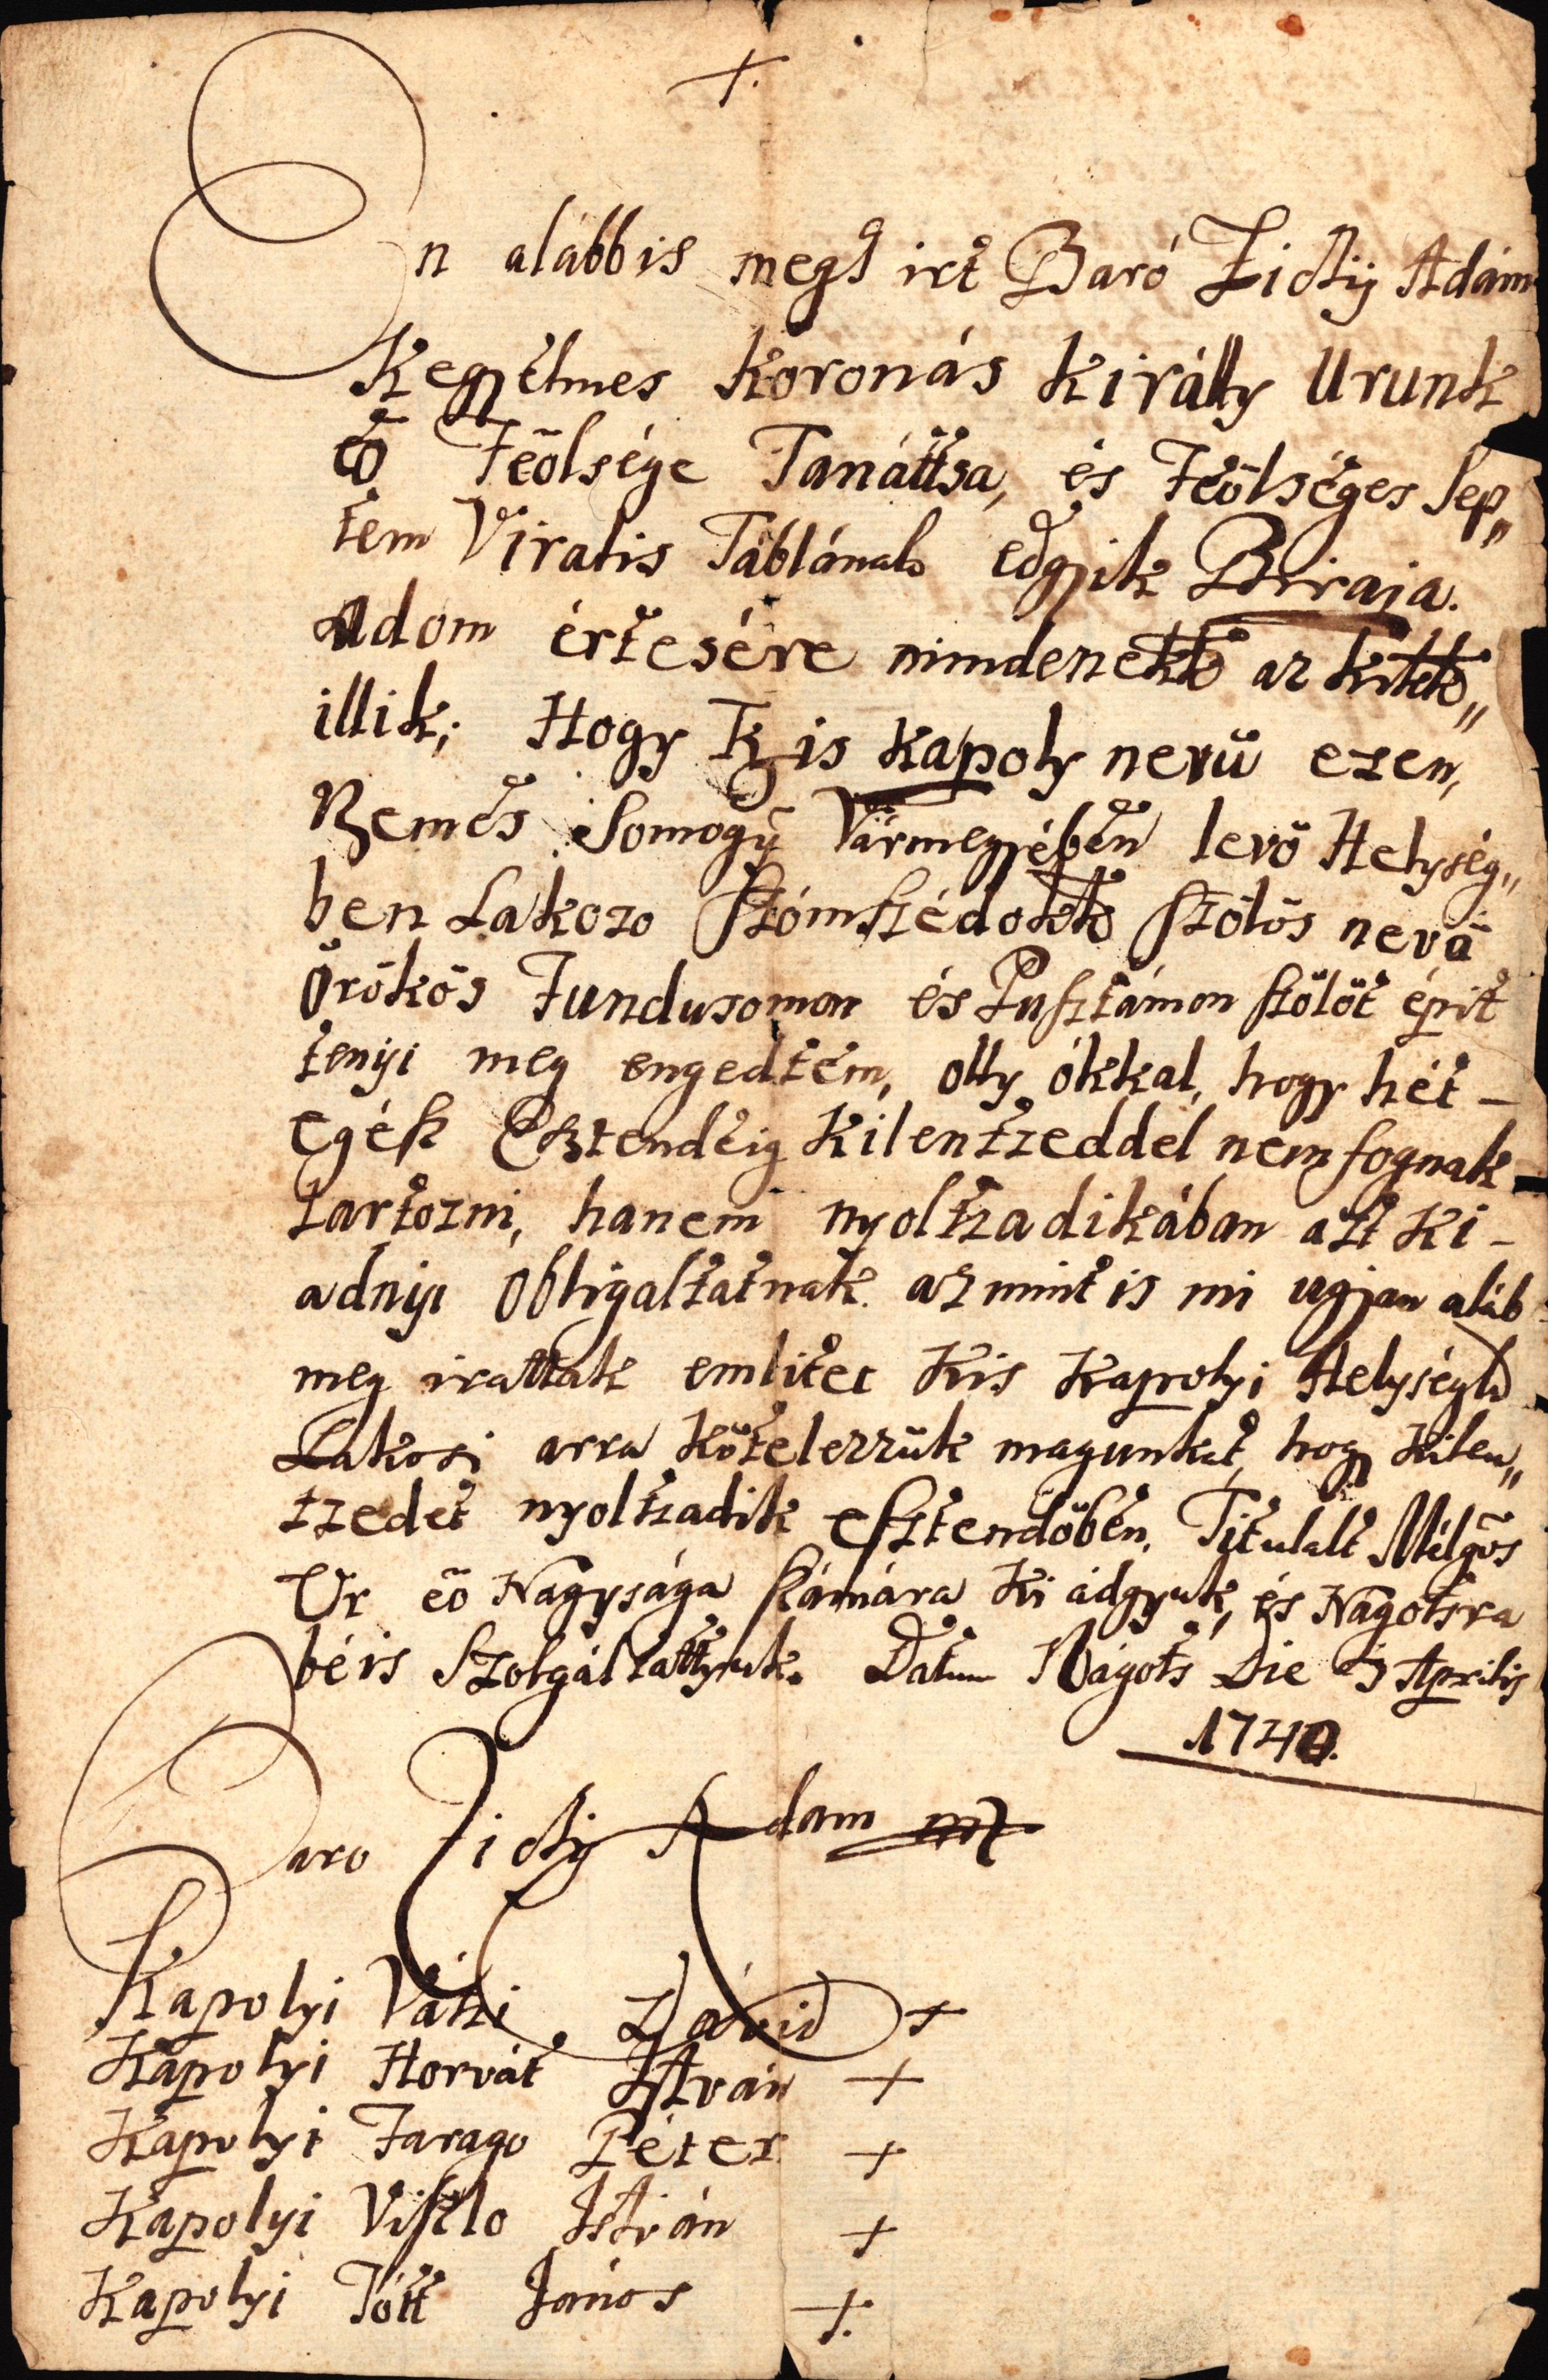 +.
Én alábbis megh irt Baró Zichÿ Adám
Kegyelmes koronás királly Urunk
eö Feölsége Tanáttsa, és Feölséges Sep„
tem Viralis Táblának edgyik Biraja.
Adom értesére mindeneknek az kiknek„
illik; Hogy Kis Kapoly nevü ezen,
Nemes Somogÿ Vármegyében levö Helység„
ben Lakozo Szómszédoknak Szölös nevü
örökös Fundusomon és Pusztámon szölöt épit
tenyi meg engedtem, olly ókkal, hogy hét –
egész Esztendeig kilentzeddel nem fognak
tartozni, hanem nyoltzadikában azt ki –
adnyi obligaltatnak. az mint is mi ugjan aláb
meg irattak emlitet Kis Kapolyi Helységh
Lakosi arra kötelezzük magunkat, hogy kilen„
tzedet nyoltzadik esztendöben, Titulalt Mélgos
Ur eö Nagysága számára ki adgyuk, és Nagotsra
béis Szolgáltattyuk. Datum Nágots Die 3 Aprilis
1740.
Baro Zichÿ Adam mp
Kapolyi Váki Dávid +
Kapolyi Horvát Istvan +
Kapolyi Farago Péter +
Kapolyi Viszlo István +
Kapolyi Tótt János +.